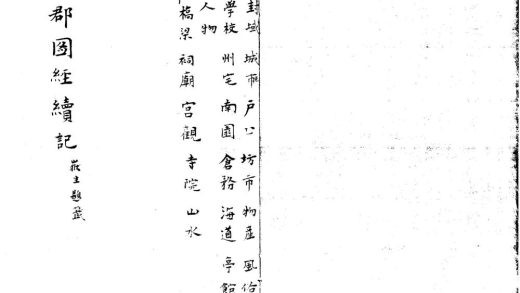 封域 城邑 戶口 坊市 物產 風俗
學校 州宅 南園 倉務 海道 亭館
人物
橋梁 祠廟 宮觀 寺院 山水
郡圖經續記
題籤